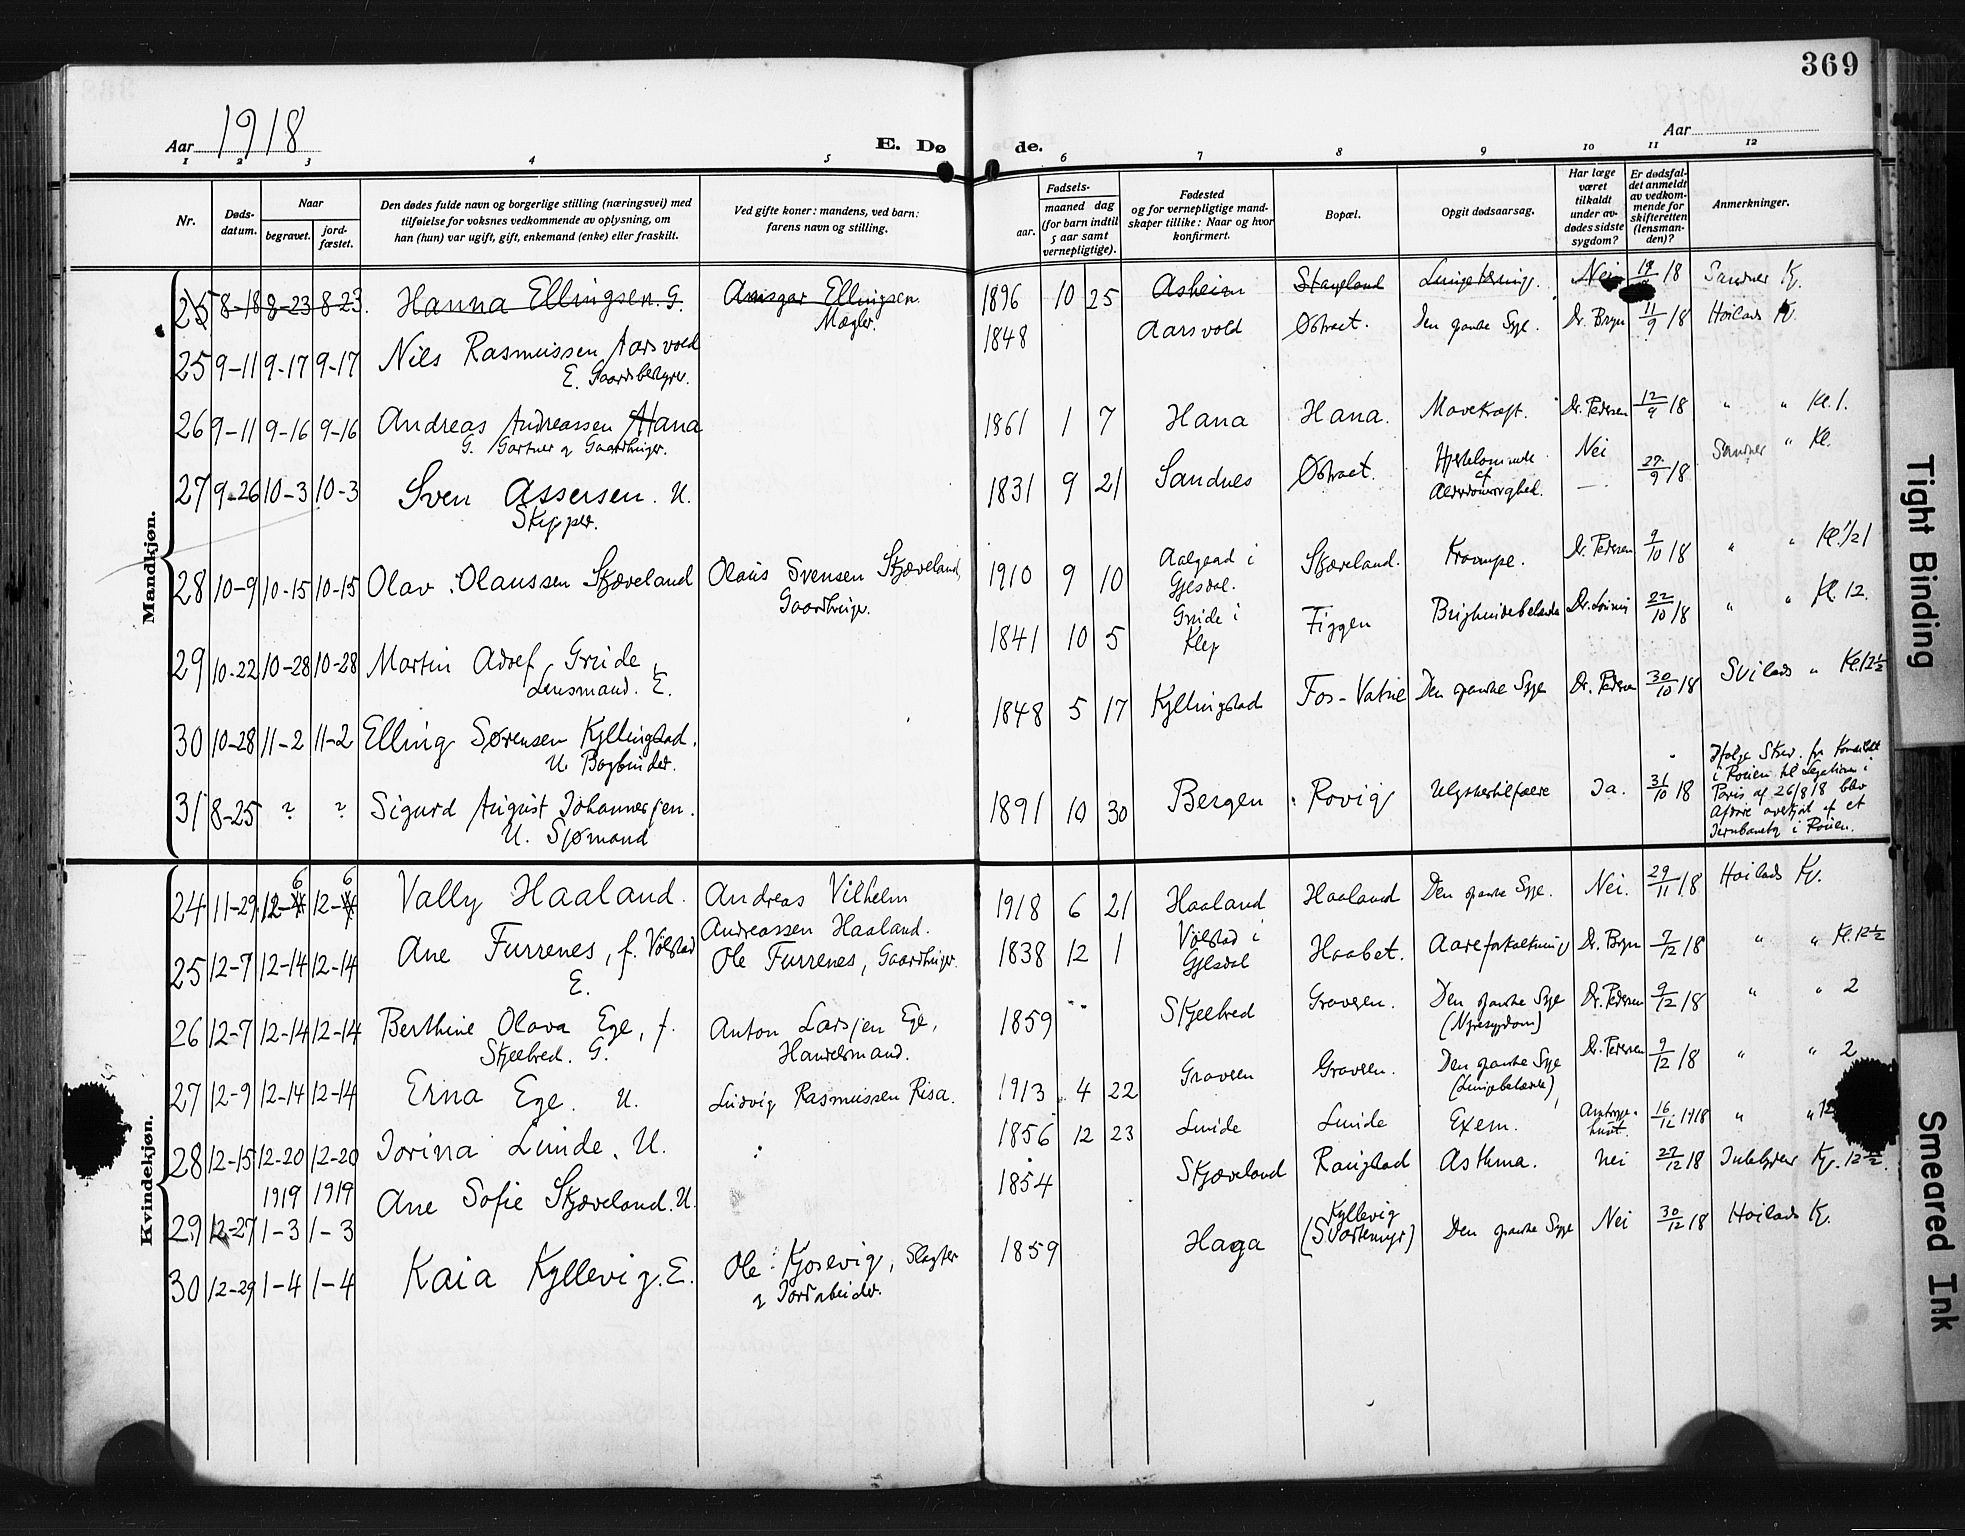 369
Aar 1918
E. Dø
de.
Aar
1 2 3 4 5 6 7 8 9 10 11 12
Nr.
Døds-
datum.
Naar
begravet.
jord-
fæstet.
Den dødes fulde navn og borgerlige stilling (næringsvei) med
tilføielse for voksnes vedkommende av oplysning, om
han (hun) var ugift, gift, enkemand (enke) eller fraskilt.
Ved gifte koner: mandens, ved barn:
farens navn og stilling.
Fødsels-
aar.
maaned dag
(for barn indtil
5 aar samt
vernepligtige).
Fødested
og for vernepligtige mand-
skaper tillike: Naar og hvor
konfirmert.
Bopæl.
Opgit dødsaarsag.
Har læge
været
tilkaldt
under av-
dødes sidste
sygdom?
Er dødsfal-
det anmeldt
av vedkom-
mende for
skifteretten
(lensman-
den)?
Anmerkninger.
Mandkjøn.
25 8-18 8-23 8-23. Hanna Ellingsen. G. Ansgar Ellingsen. 1896 10 25 Asheim Stangeland Nei 19/18 Sandnes K.
Mægler.
25 9-11 9-17 9-17 Nils Rasmussen Aarsvold 1848 Aarsvold Østraet. Den spanske Syge. Dr. Bryn 11/9 18 Høilands K.
E. Gaardbestyrer.
26 9-11 9-16 9-16 Andreas Andreassen Hana 1861 1 7 Hana Hana. Mavekræft. Dr. Pedersen 12/9 18 " " Kl. 1.
G. Gartner og Gaardbruger.
27 9-26 10-3 10-3 Sven Assersen. U. 1831 9 21 Sandnes Østraet. Hjertelammelse Nei 27/9 18 Sandnes " Kl.
Skipper. af Alderdomssvaghed.
28 10-9 10-15 10-15 Olav Olaussen Skjæveland Olaus Svensen Skjæveland, 1910 9 10 Aalgaad i Skjæveland. Krampe. Dr. Pedersen 9/10 18 " " Kl. 1/21
Gaardbruger. Gjesdal.
29 10-22 10-28 10-28 Martin Adolf Grude 1841 10 5 Grude i Figgen Dr. 22/10 18 " " Kl. 12.
Lensmand. E. Klep
30 10-28 11-2 11-2 Elling Sørensen Kyllingstad. 1848 5 17 Kyllingstad Fos-Vatne Den spanske Syge Dr. Pedersen 30/10 18 " Kl. 12½
U. Bogbinder.
31 8-25 ? ? Sigurd August Johannessen. 1891 10 30 Bergen Rovig Ulykkestilfælde Ja. 31/10 18 Ifølge Skriv. fra Konsulatet
U. Sjømand i Rouen til Legationen i
Paris af 26/8 18 blev
Afdøde overkjørt af et
Jernbanetog i Rouen.
Kvindekjøn.
24 11-29 12-6 12-6 Vally Haaland. Andreas Vilhelm 1918 6 21 Haaland Haaland Den spanske Syge. Nei. 29/11 18 Høilands K.
Andreassen Haaland.
25 12-7 12-14 12-14 Ane Furrenes, f. Vølstad Ole Furrenes, Gaardbruger. 1838 12 1 Vølstad i Haabet. Aareforkalkning Dr. Bryn 7/12 18 " " Kl. 12½
E. Gjesdal
26 12-7 12-14 12-14 Berthine Olava Ege, f. Anton Larsen Ege, 1859 Skjelbred Graveren. Den spanske Syge Dr. Pedersen 9/12 18 " " 2
Skjelbred. G. Handelsmand. (Nyresygdom)
27 12-9 12-14 12-14 Erna Ege. U. Ludvig Rasmussen Risa. 1913 4 22 Graveren Graveren. Den spanske Syge Dr. Pedersen 9/12 18 " " 2
28 12-15 12-20 12-20 Jorina Lunde. U. 1856 12 23 Lunde Lunde Exem. 16/12 1918 " " 12
29 12-27 1919 1-3 1919 1-3 Ane Sofie Skjæveland. U. 1854 Skjæveland Raugstad Asthma. nei 27/12 18 K. 12½
30 12-29 1-4 1-4 Kaia Kyllevig. E. Ole Kjosevig, Slagter 1859 Haga Kyllevig Den spanske Syge Nei 30/12 18 Høilands K.
& Jordarbeider. (Svartemyr)
Tight Binding
Smeared Ink